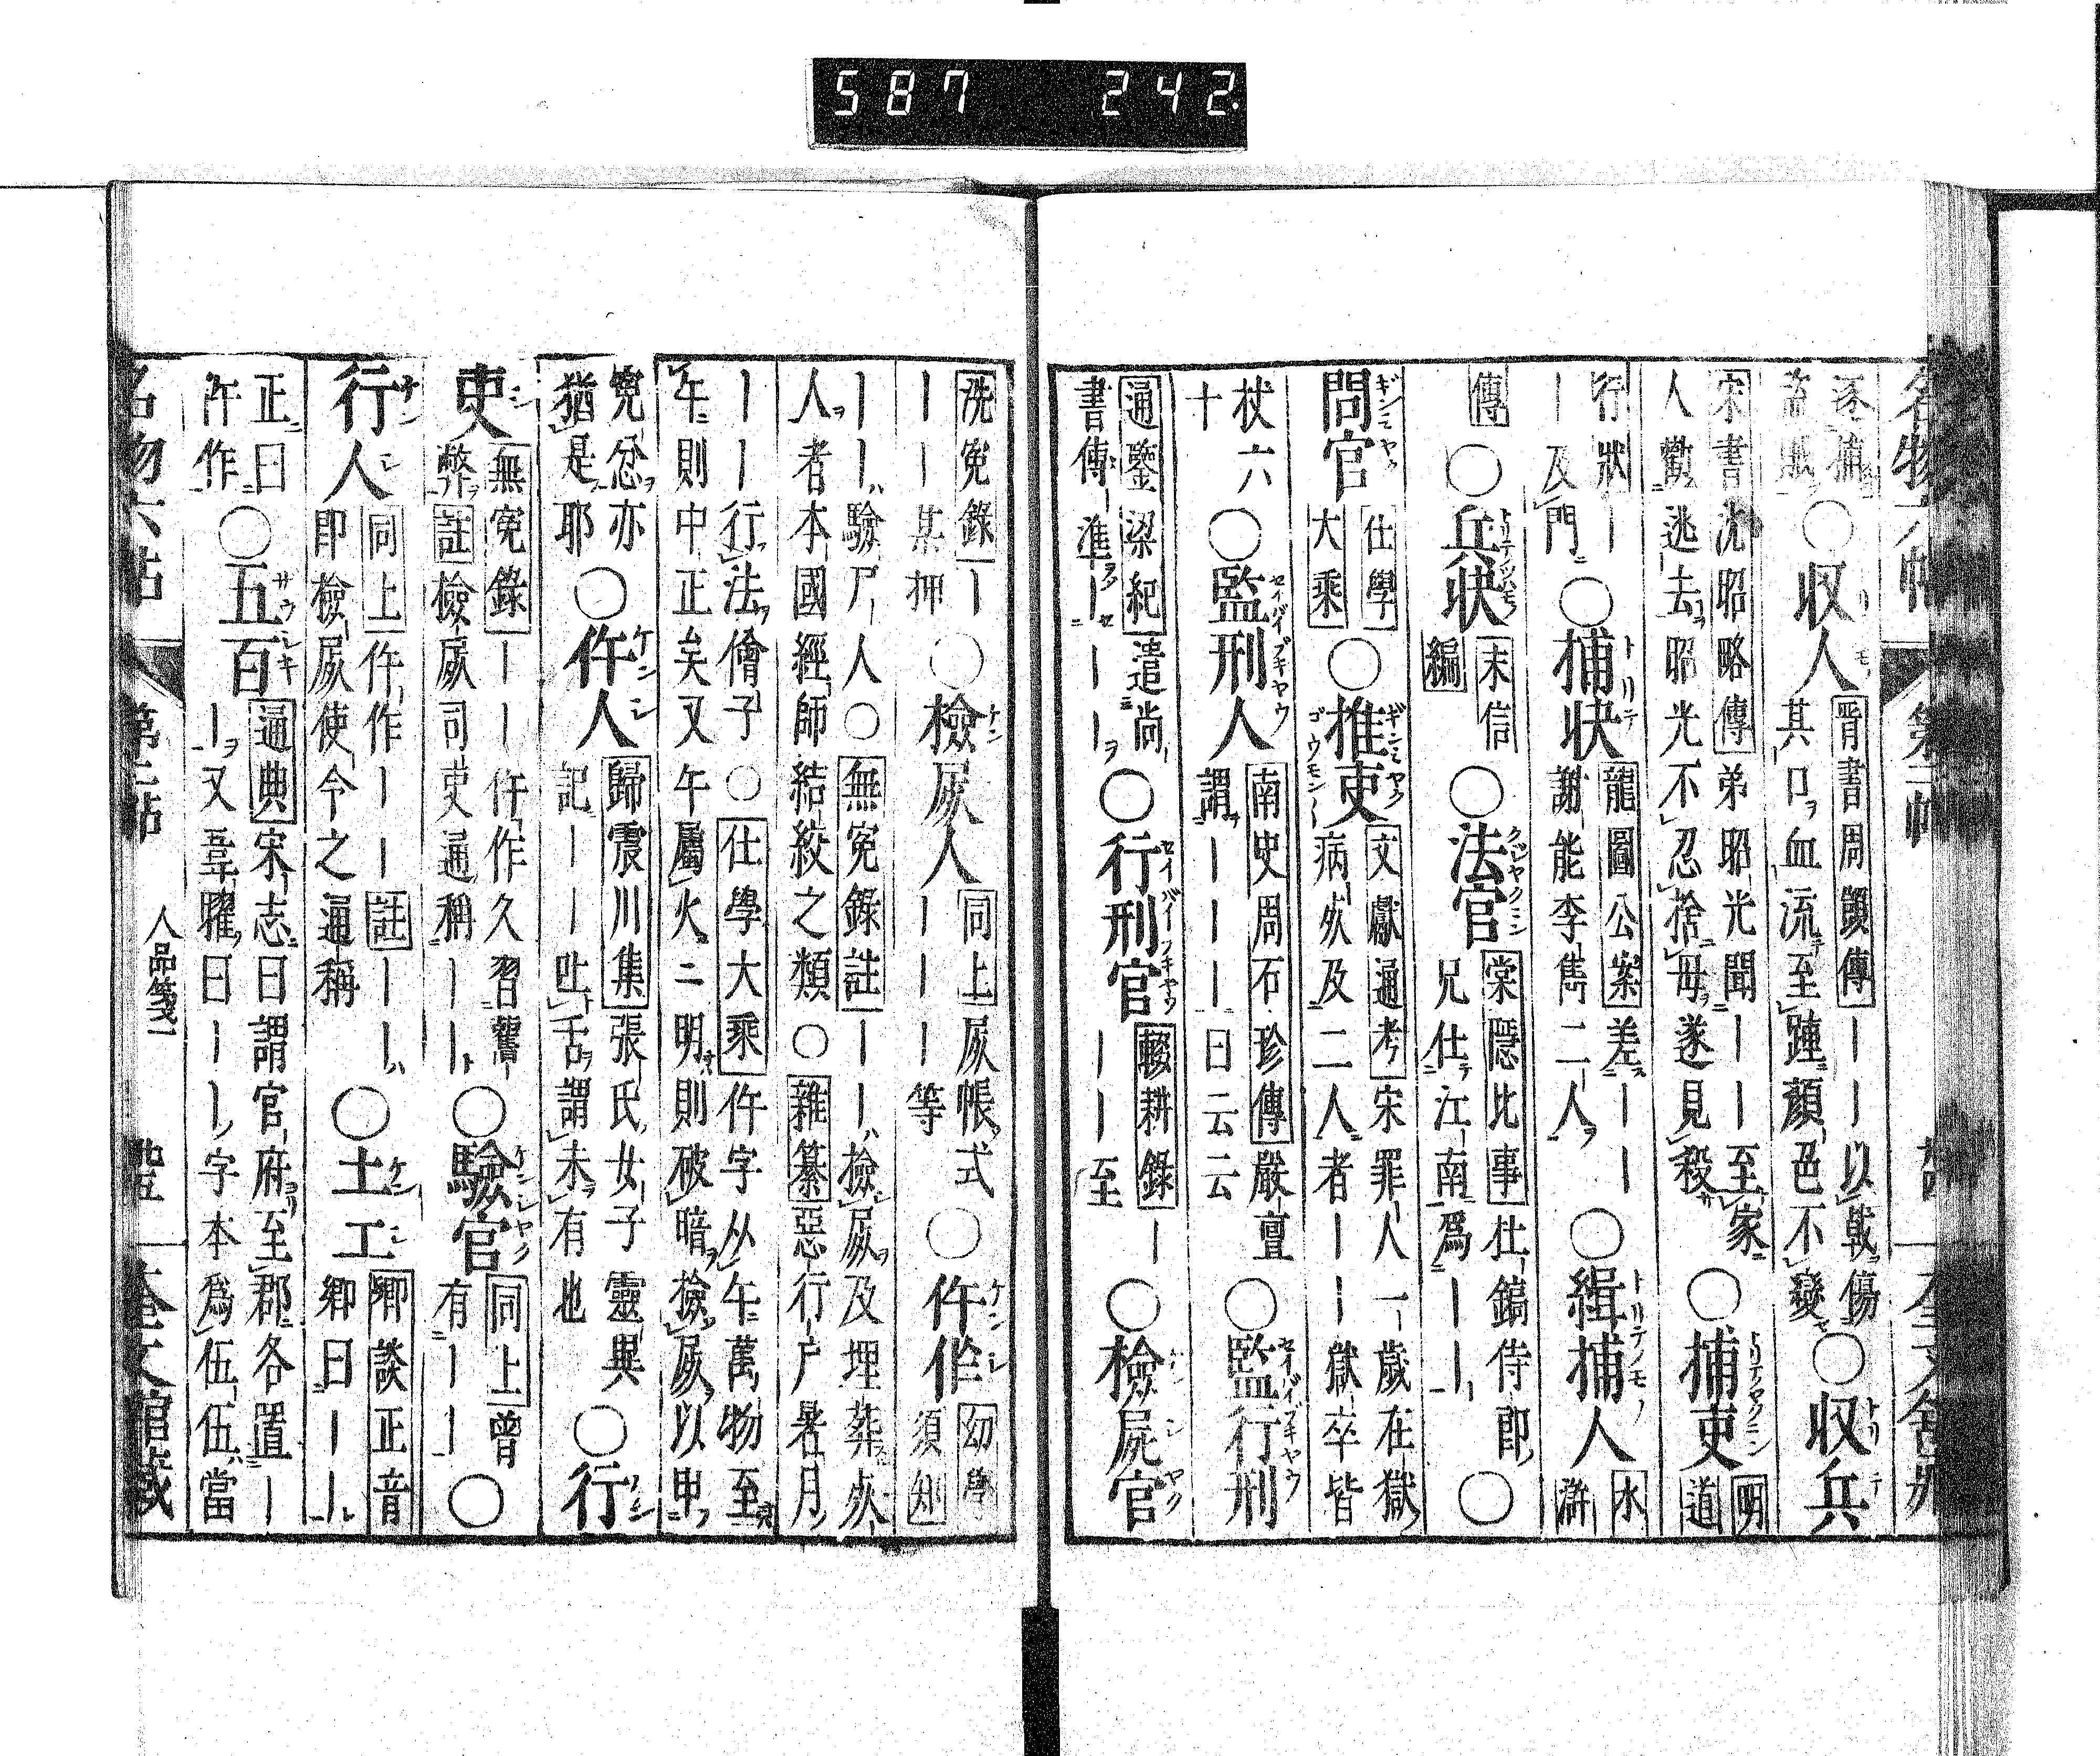 587 242.
逐捕
流賊
○収人
晋書周顗傳｜｜以戟傷
其口血流至踵顏色不變
○収兵
宋書沈昭略傳弟昭光聞｜｜至家
人勸逃去昭光不忍捨母遂見殺
○捕吏
明
道
行狀｜
｜及門
○捕快
龍圖公案差｜｜
謝能李雋二人
○緝捕人
水
滸
傳
○兵快
未信
編
○法官
棠隱比事杜鎬侍郎
兄仕江南爲｜｜
○
問官
仕學
大乘
○推吏
文獻通考宋罪人一歲在獄
病死及二人者｜｜獄卒皆
杖六
十
○監刑人
南史周石珍傳嚴亶
謂｜｜｜曰云云
○監行刑
通鑒梁紀遣尚
書傳準｜｜｜
○行刑官
輟耕錄｜
｜｜至
○檢屍官
洗冤錄｜
｜｜某押
○檢屍人
同上屍帳式
｜｜｜等
○仵作
幼學
須知
｜｜驗尸人○無冤錄註｜｜檢屍及埋葬死
人者本國經師結絞之類○雜纂惡行戶暑月
｜｜行法儈子○仕學大乘仵字从午萬物至
午則中正矣又午屬火二明則破暗檢屍以申
冤忿亦
猶是耶
○仵人
歸震川集張氏女子靈異
記｜｜吐舌謂未有也
○行
吏
無冤錄｜｜仵作久習舊
弊註檢屍司吏通稱｜｜
○驗官
同上曾
有｜｜
○
行人
同上仵作｜｜註｜｜
即檢屍使令之通稱
○土工
鄉談正音
鄉曰｜｜
正曰
仵作
○五百
通典宋志曰謂官府至郡各置｜
｜又韋曜曰｜｜字本爲伍伍當
名物六帖
第二帖
人品箋二
奎文館藏